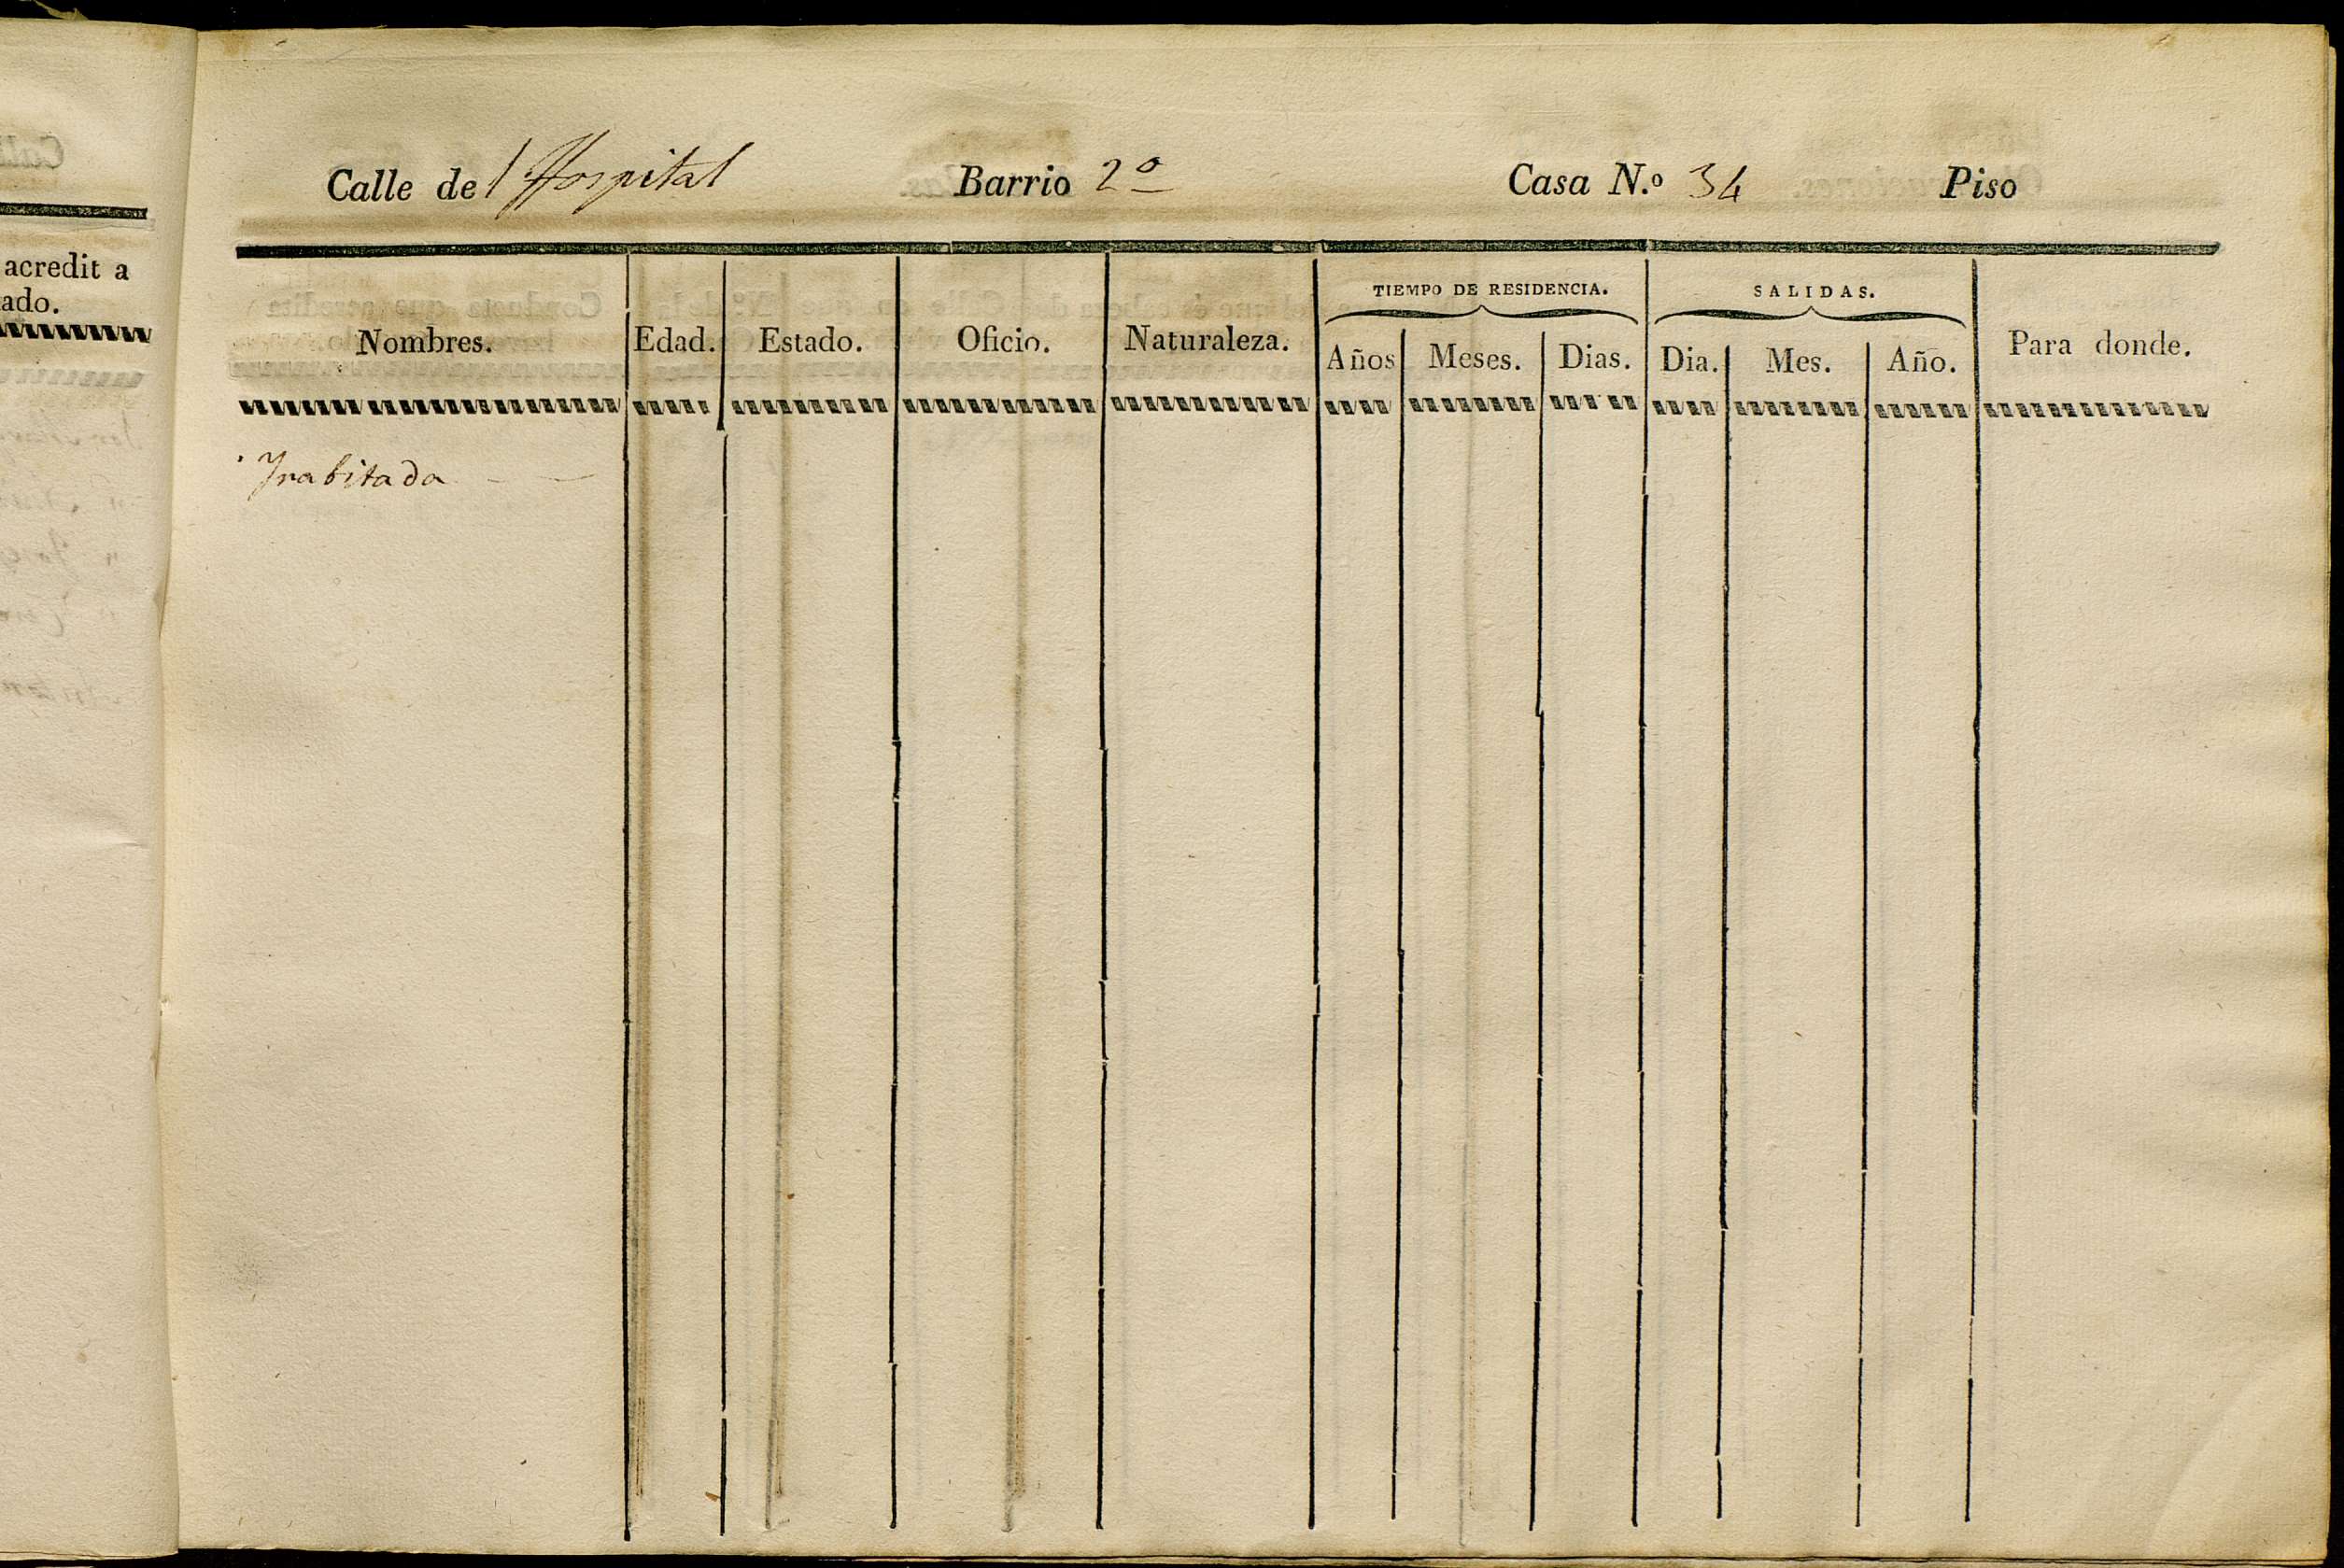 acredit a
ado.
Calle de l Hospital Barrio 2º Casa N.º 34 Piso
TIEMPO DE RESIDENCIA. SALIDAS.
Nombres. Edad. Estado. Oficio. Naturaleza. Años Meses. Dias. Dia. Mes. Año. Para donde.
Inabitada